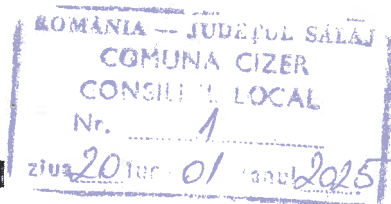 ROMÂNIA — JUDEȚUL SĂLAJ
COMUNA CIZER
CONSILIUL LOCAL
Nr. 1
ziua 20 luna 01 anul 2025